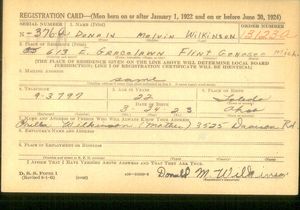 REGISTRATION CARD—(Men born on or after January 1, 1922 and on or before June 30, 1924)
SERIAL NUMBER 1. NAME (Print) ORDER NUMBER
N-376 Donald Melvin Wilkinson
2. PLACE OF RESIDENCE (Print)
613 E. Gracelawn Flint Genesee Mich
[THE PLACE OF RESIDENCE GIVEN ON THE LINE ABOVE WILL DETERMINE LOCAL BOARD
JURISDICTION; LINE 2 OF REGISTRATION CERTIFICATE WILL BE IDENTICAL]
3. MAILING ADDRESS
same
4. TELEPHONE
9-3797 22 Toledo
3 24 23 Ohio
7. NAME AND ADDRESS OF PERSON WHO WILL ALWAYS KNOW YOUR ADDRESS
Wilkinson (Mother) 3525 Rd
8. EMPLOYER'S NAME AND ADDRESS
9. PLACE OF EMPLOYMENT OR BUSINESS
I AFFIRM THAT I HAVE VERIFIED ABOVE ANSWERS AND THAT THEY ARE TRUE.
D. S. S. FORM 1
Donald M. Wilkinson